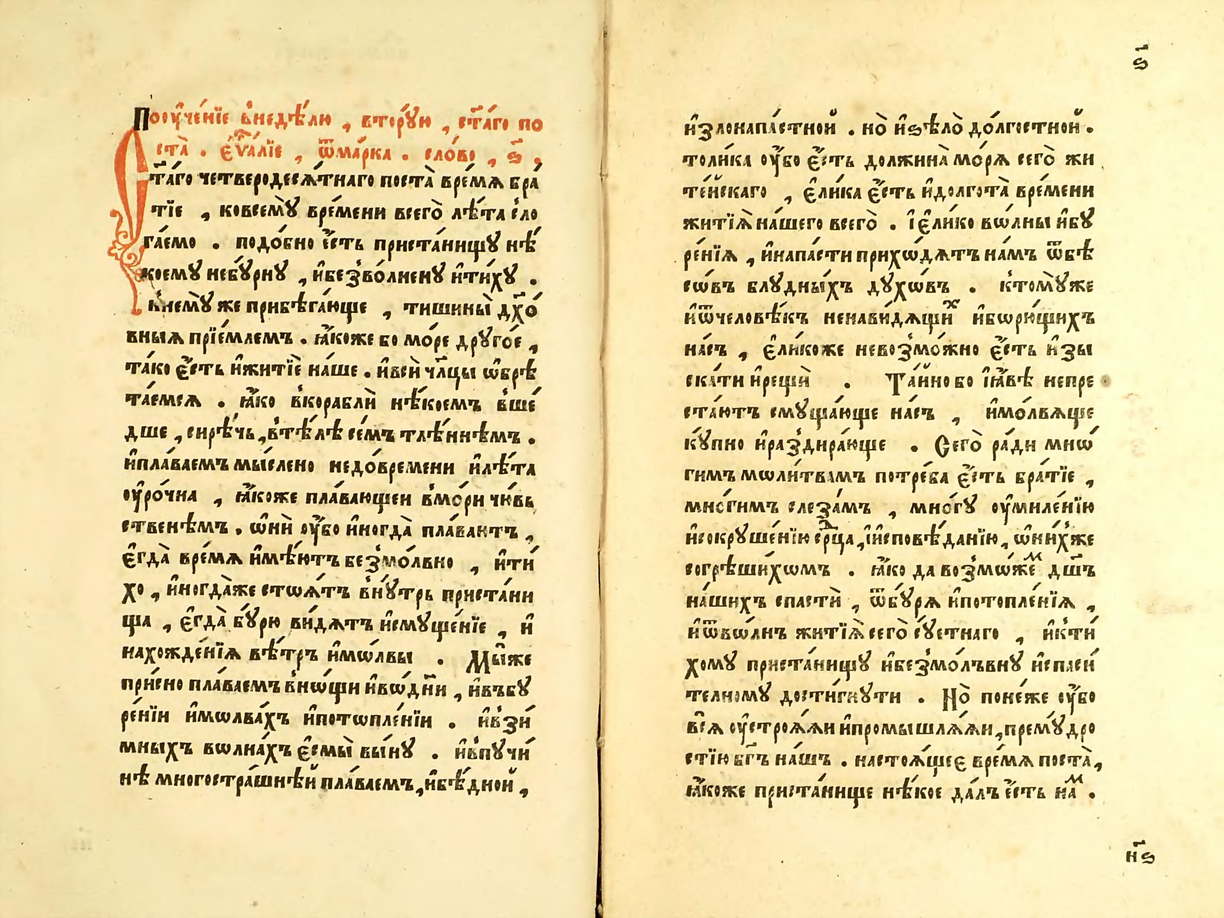 Пооуче́нїе в̾недѣ́лю , втору́ю , ст҃а́го по
ста̀ . є҆ѵⷢ҇алїе , ѿма́рка . сло́во , ѕ҃ ,
Ст҃а́го четверодеся́тнаго поста̀ вре́мѧ бра́
тїе , ковсемꙋ̀ вре́мени всего̀ лѣ́та сло
га́емо . подо́бно є҆́сть приста́нищꙋ нѣ́
коемꙋ небꙋ́рнꙋ , и҆безво́лненꙋ и҆ти́хꙋ .
к̾немꙋ́же прибѣга́юще , тишины̀ дх҃о́
вныѧ прїе́млемъ . ꙗ҆́коже бо мо́ре дрꙋго́е ,
та́ко є҆́сть и҆житїѐ на́ше . и҆всѝ чл҃цы ѡ҆брѣ
та́емсѧ . ꙗ҆́ко в̾корабли̑ нѣ́коемъ в̾шѐ
дше , си́рѣчь , в̾тѣ́лѣ се́мъ тлѣ́ннѣмъ .
и҆пла́ваемъ мы́слено недо́времени и҆лѣ́та
оу҆ро́чна , ꙗ҆́коже пла́вающеи в̾мо́ри чю́вь
ственѣмъ . ѡ҆нѝ оу҆́бо и҆ногда̀ пла́ваютъ ,
є҆гда̀ вре́мѧ и҆мѣ́ютъ безмо́лвно , и҆ти́
хо , и҆ногда́же стоѧ́тъ внꙋ́трь приста́ни
ща , є҆гда̀ бꙋ́рю ви́дѧтъ и҆смꙋще́нїе , и҆
нахожде́нїѧ вѣ́тръ и҆мѡ́лвы . Мы́же
при́сно пла́ваемъ в̾нѡщѝ и҆вѡднѝ , и҆въбꙋ́
ренїи и҆мѡлва́хъ и҆потѡпле́нїи . и҆вѕи́
мныхъ вѡлна́хъ є҆смы̀ вы́нꙋ . и҆впꙋчи́
нѣ многостра́шнѣй пла́ваемъ , и҆бѣ́дной ,
ѕ҃
и҆злонапа́стной . но̀ и҆ѕѣлѡ̀ до́лгостной .
толи́ка оу҆́бо є҆́сть должина̀ мо́рѧ сего̀ жи
те́йскаго , є҆ли́ка є҆́сть и҆долгота̀ вре́мени
житїѧ̀ на́шего всего̀ . і҆є҆ли́ко вѡ́лны и҆бꙋ́
ренїѧ , и҆напа́сти прихѡ́дѧтъ на́мъ ѿбѣ
сѡ́въ блꙋ́дныхъ дꙋ́хѡвъ . ктомꙋ́же
и҆ѿчеловѣ́къ ненави́дѧщиⷯ и҆борю́щихъ
на́съ , є҆ли́коже невозмо́жно є҆́сть и҆зы
ска́ти и҆рещѝ . Та́йно бо і҆ꙗ҆́вѣ непре
стаю́тъ смꙋща́юще на́съ , и҆мо́лвѧще
кꙋ́пно и҆раздира́юще . Сего̀ ра́ди мнѡ́
гимъ мѡли́твамъ потре́ба є҆́сть бра́тїе ,
мно́гимъ слеза́мъ , мно́гꙋ оу҆миле́нїю
и҆сокрꙋше́нїю ср҃ца , і҆и҆сповѣ́данїю , ѡ҆ни́хже
согрѣши́хѡмъ . ꙗ҆́ко да возмѡ́жеⷨ дш҃ъ
на́шихъ спастѝ , ѿбꙋ́рѧ и҆потопле́нїѧ ,
и҆ѿвѡ́лнъ житїѧ̀ сего̀ сꙋ́етнаго , и҆кти́
хомꙋ приста́нищꙋ и҆безмо́лъвнꙋ и҆спаси́
телномꙋ дости́гнꙋти . Но̀ поне́же оу҆́бо
всѧ̀ оу҆строѧ́ѧи и҆промышлѧ́ѧи , премꙋ́дро
стїю бг҃ъ на́шъ . настоѧ́щеє вре́мѧ поста̀ ,
ꙗ҆́коже приста́нище нѣ́кое да́лъ є҆́сть на́ⷨ .
н҃ѕ